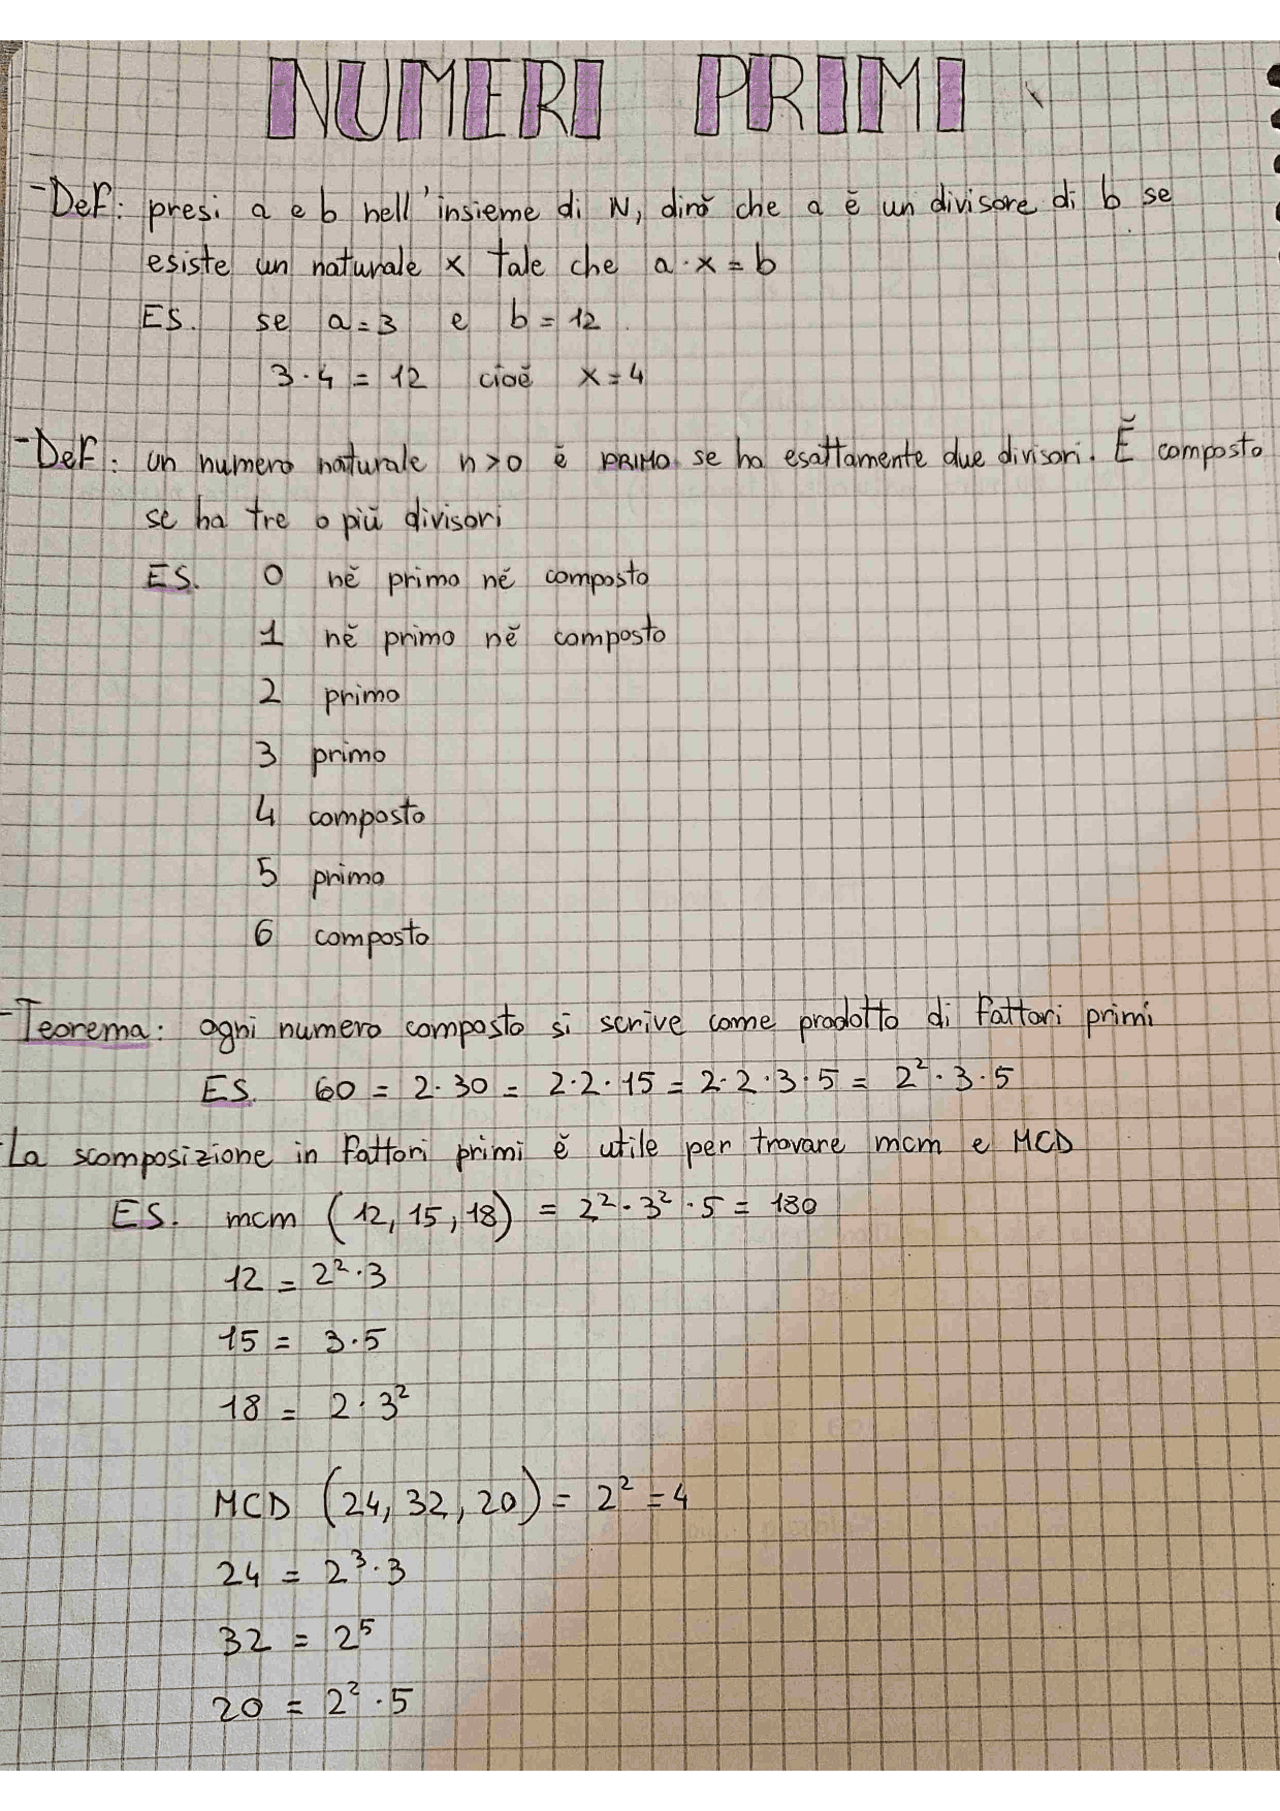 NUMERI PRIMI
-Def: presi a e b nell'insieme di N, dirò che a è un divisore di b se
esiste un naturale x tale che a·x=b
ES. se a=3 e b=12
3·4=12 cioè x=4
-Def: un numero naturale n>0 è PRIMO se ha esattamente due divisori. È composto
se ha tre o più divisori
ES. 0 nè primo nè composto
1 nè primo nè composto
2 primo
3 primo
4 composto
5 primo
6 composto
-Teorema: ogni numero composto si scrive come prodotto di fattori primi
ES. 60 = 2·30 = 2·2·15 = 2·2·3·5 = 2²·3·5
-La scomposizione in fattori primi è utile per trovare mcm e MCD
ES. mcm (12, 15, 18) = 2²·3²·5 = 180
12 = 2²·3
15 = 3·5
18 = 2·3²
MCD (24, 32, 20) = 2² = 4
24 = 2³·3
32 = 2⁵
20 = 2²·5